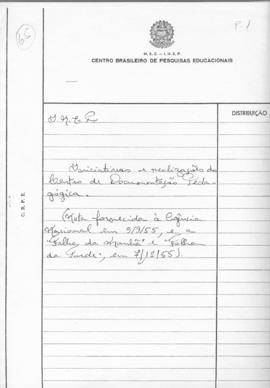 P.1
M. E. C. — I. N. E. P.
CENTRO BRASILEIRO DE PESQUISAS EDUCACIONAIS
DISTRIBUIÇÃO
I N E P
Iniciativas e realização do
Centro de Documentação Peda-
gógica.
(Nota fornecida à Agência
Nacional em 9/9/55, e a
"Folha da Manhã" e "Folha
da Tarde", em 7/12/55)
C. B. P. E.